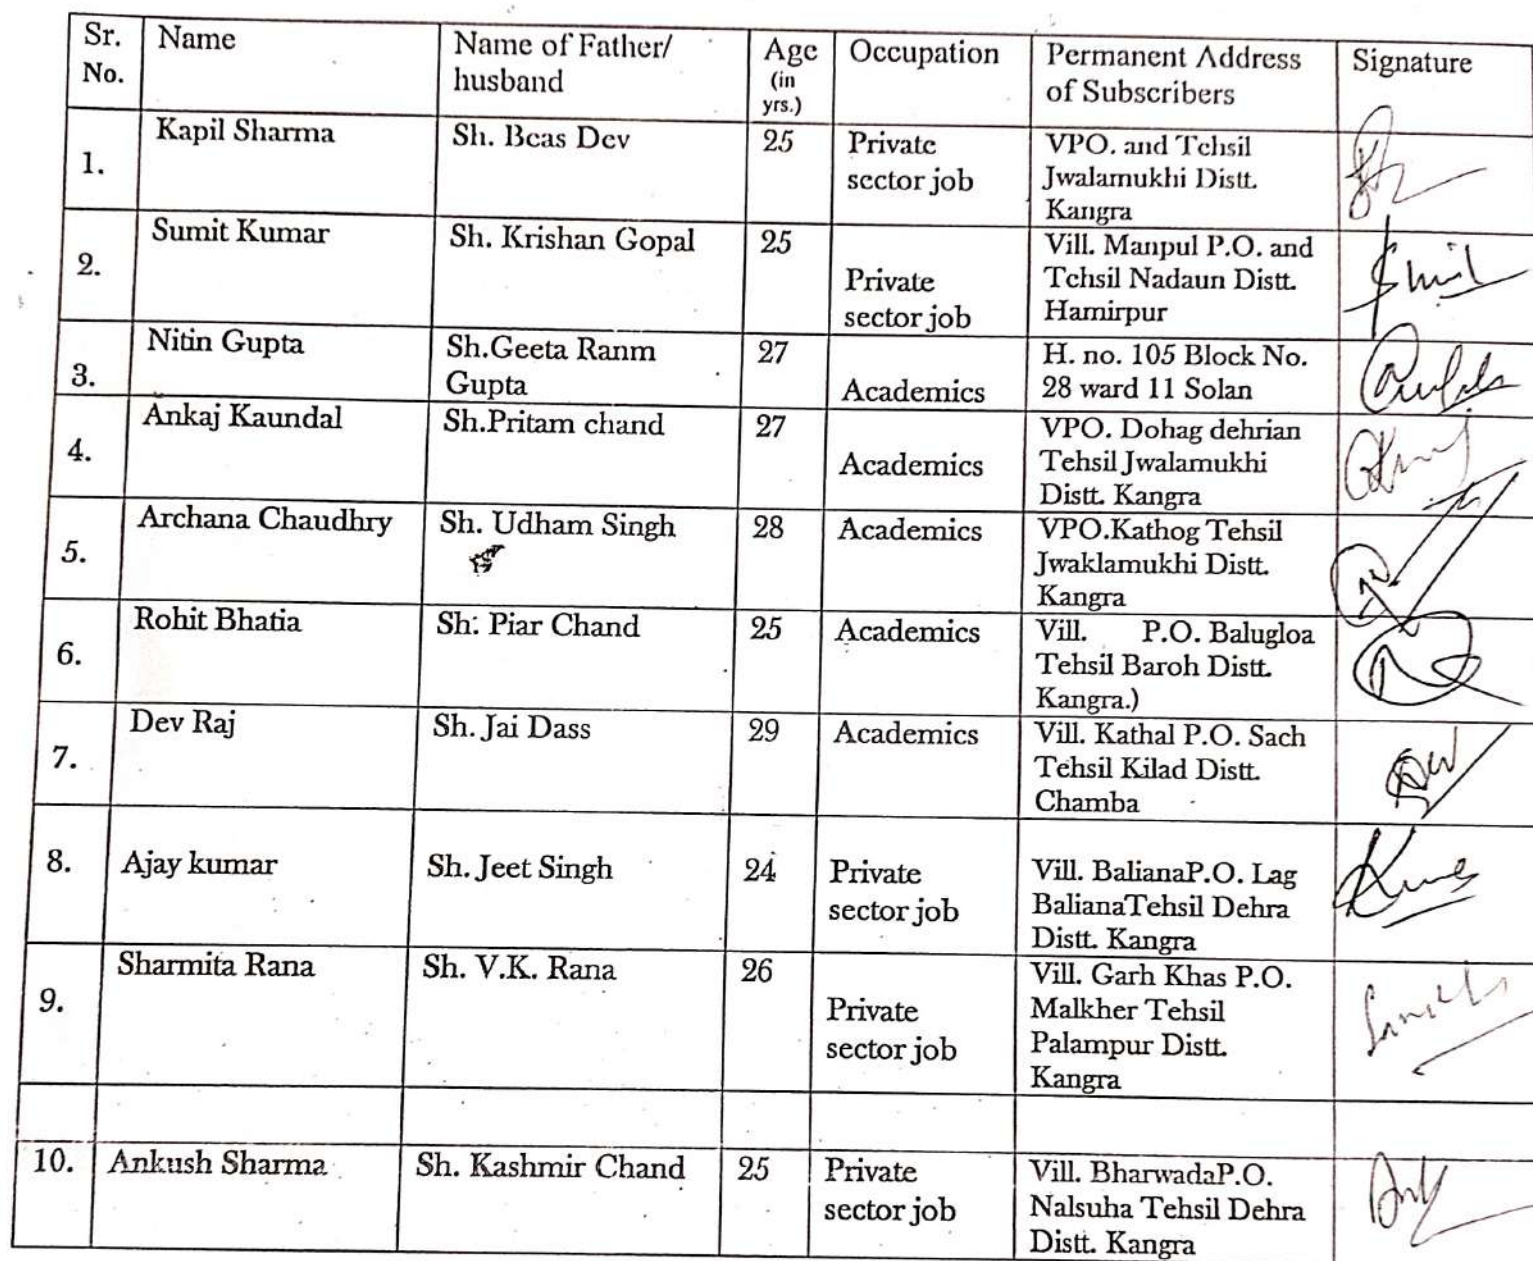 Sr. No. Name Name of Father/ husband Age (in yrs.) Occupation Permanent Address of Subscribers Signature
1. Kapil Sharma Sh. Beas Dev 25 Private sector job VPO. and Tehsil Jwalamukhi Distt. Kangra
2. Sumit Kumar Sh. Krishan Gopal 25 Private sector job Vill. Manpul P.O. and Tehsil Nadaun Distt. Hamirpur
3. Nitin Gupta Sh.Geeta Ranm Gupta 27 Academics H. no. 105 Block No. 28 ward 11 Solan
4. Ankaj Kaundal Sh.Pritam chand 27 Academics VPO. Dohag dehrian Tehsil Jwalamukhi Distt. Kangra
5. Archana Chaudhry Sh. Udham Singh 28 Academics VPO.Kathog Tehsil Jwaklamukhi Distt. Kangra
6. Rohit Bhatia Sh: Piar Chand 25 Academics Vill. P.O. Balugloa Tehsil Baroh Distt. Kangra.)
7. Dev Raj Sh. Jai Dass 29 Academics Vill. Kathal P.O. Sach Tehsil Kilad Distt. Chamba
8. Ajay kumar Sh. Jeet Singh 24 Private sector job Vill. BalianaP.O. Lag BalianaTehsil Dehra Distt. Kangra
9. Sharmita Rana Sh. V.K. Rana 26 Private sector job Vill. Garh Khas P.O. Malkher Tehsil Palampur Distt. Kangra
10. Ankush Sharma Sh. Kashmir Chand 25 Private sector job Vill. BharwadaP.O. Nalsuha Tehsil Dehra Distt. Kangra